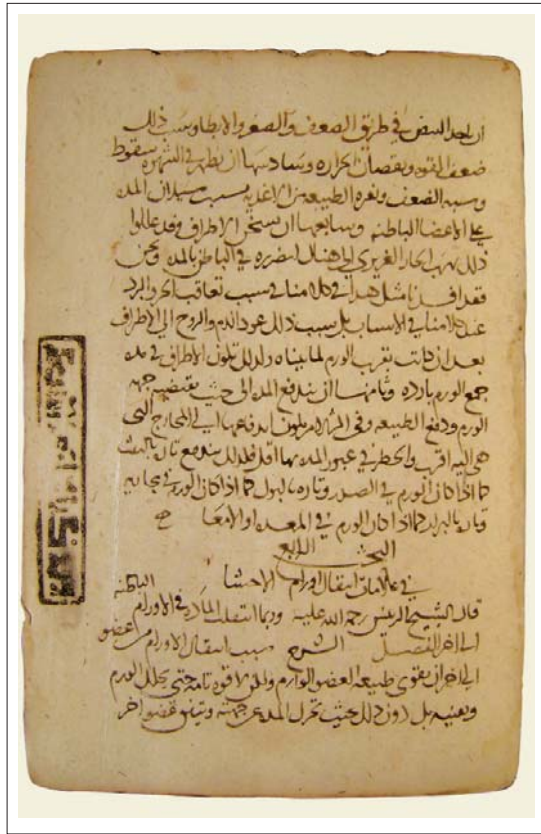 ان يوجد النبض في طريق الضعف والصغر والابطا وسبب ذلك
ضعف القوه ونقصان الحراره وسادسها ان يظهر في الشهوه سقوط
وسببه الضعف ونفره الطبيعه من الاغذيه بسبب سيلان المده
على الاعضا الباطنه وسابعها ان تسخن الاطراف وقد عللوا
ذلك بهرب الحار الغريزي الى هناك لتضرره في الباطن بالمده ونحن
فقد افدنا مثل هذا في كلامنا في سبب تعاقب الحر والبرد
عند كلامنا في الاسباب بل سبب ذلك عود الدم والروح الى الاطراف
بعد ان كانت بقرب الورم لما بيناه ولذلك تكون الاطراف في مده
جمع الورم بارده وثامنها ان تندفع المده الى حيث يقتضيه جهه
الورم ودفع الطبيعه وفي الاكثر يكون اندفاعها الى المخارج التي
هي اليه اقرب والخطر في عبور المده بها اقل فلذلك يندفع تاره بالنفث
كما اذا كان الورم في الصدر وتاره بالبول كما اذا كان الورم في محدبه
وتاره بالبراز كما اذا كان الورم في المعده او الامعا
البحث الرابع
في علامات انتقال اورام الاحشا الباطنه
قال الشيخ الرئيس رحمه الله عليه وربما انتقلت الماده في الاورام
الى اخر الفصل الشرح سبب انتقال الاورام من عضو
الى اخر ان تقوى طبيعه العضو الوارم ولكن لا قوه تامه حتى يحلل الورم
ويفنيه بل دون ذلك بحيث تحرك الماده عن جهته وتيقن عضو اخر